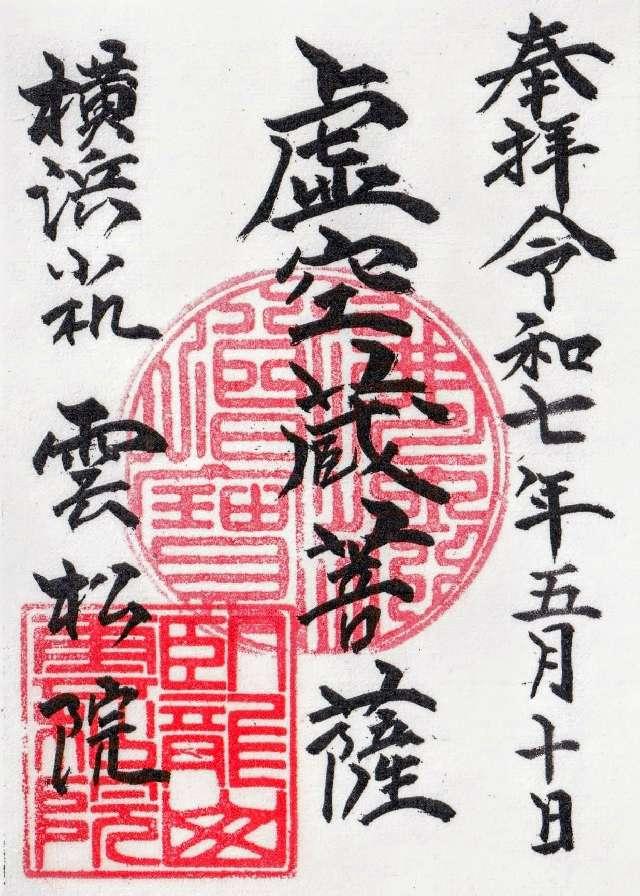 奉拝令和七年五月十日
虚空蔵菩薩
横浜小机 雲松院
臥龍山
雲松院